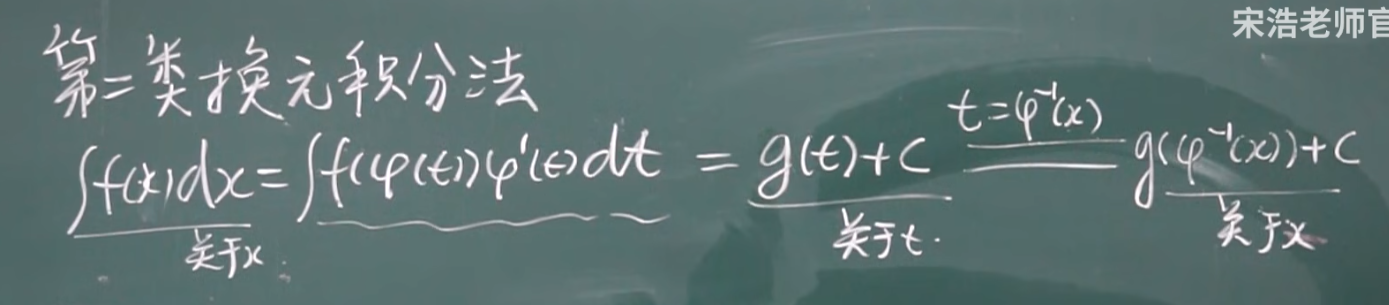 宋浩老师官
第二类换元积分法
∫f(x)dx = ∫f(φ(t))φ'(t)dt = g(t)+C t=φ⁻¹(x) g(φ⁻¹(x))+C
关于x. 关于t. 关于x